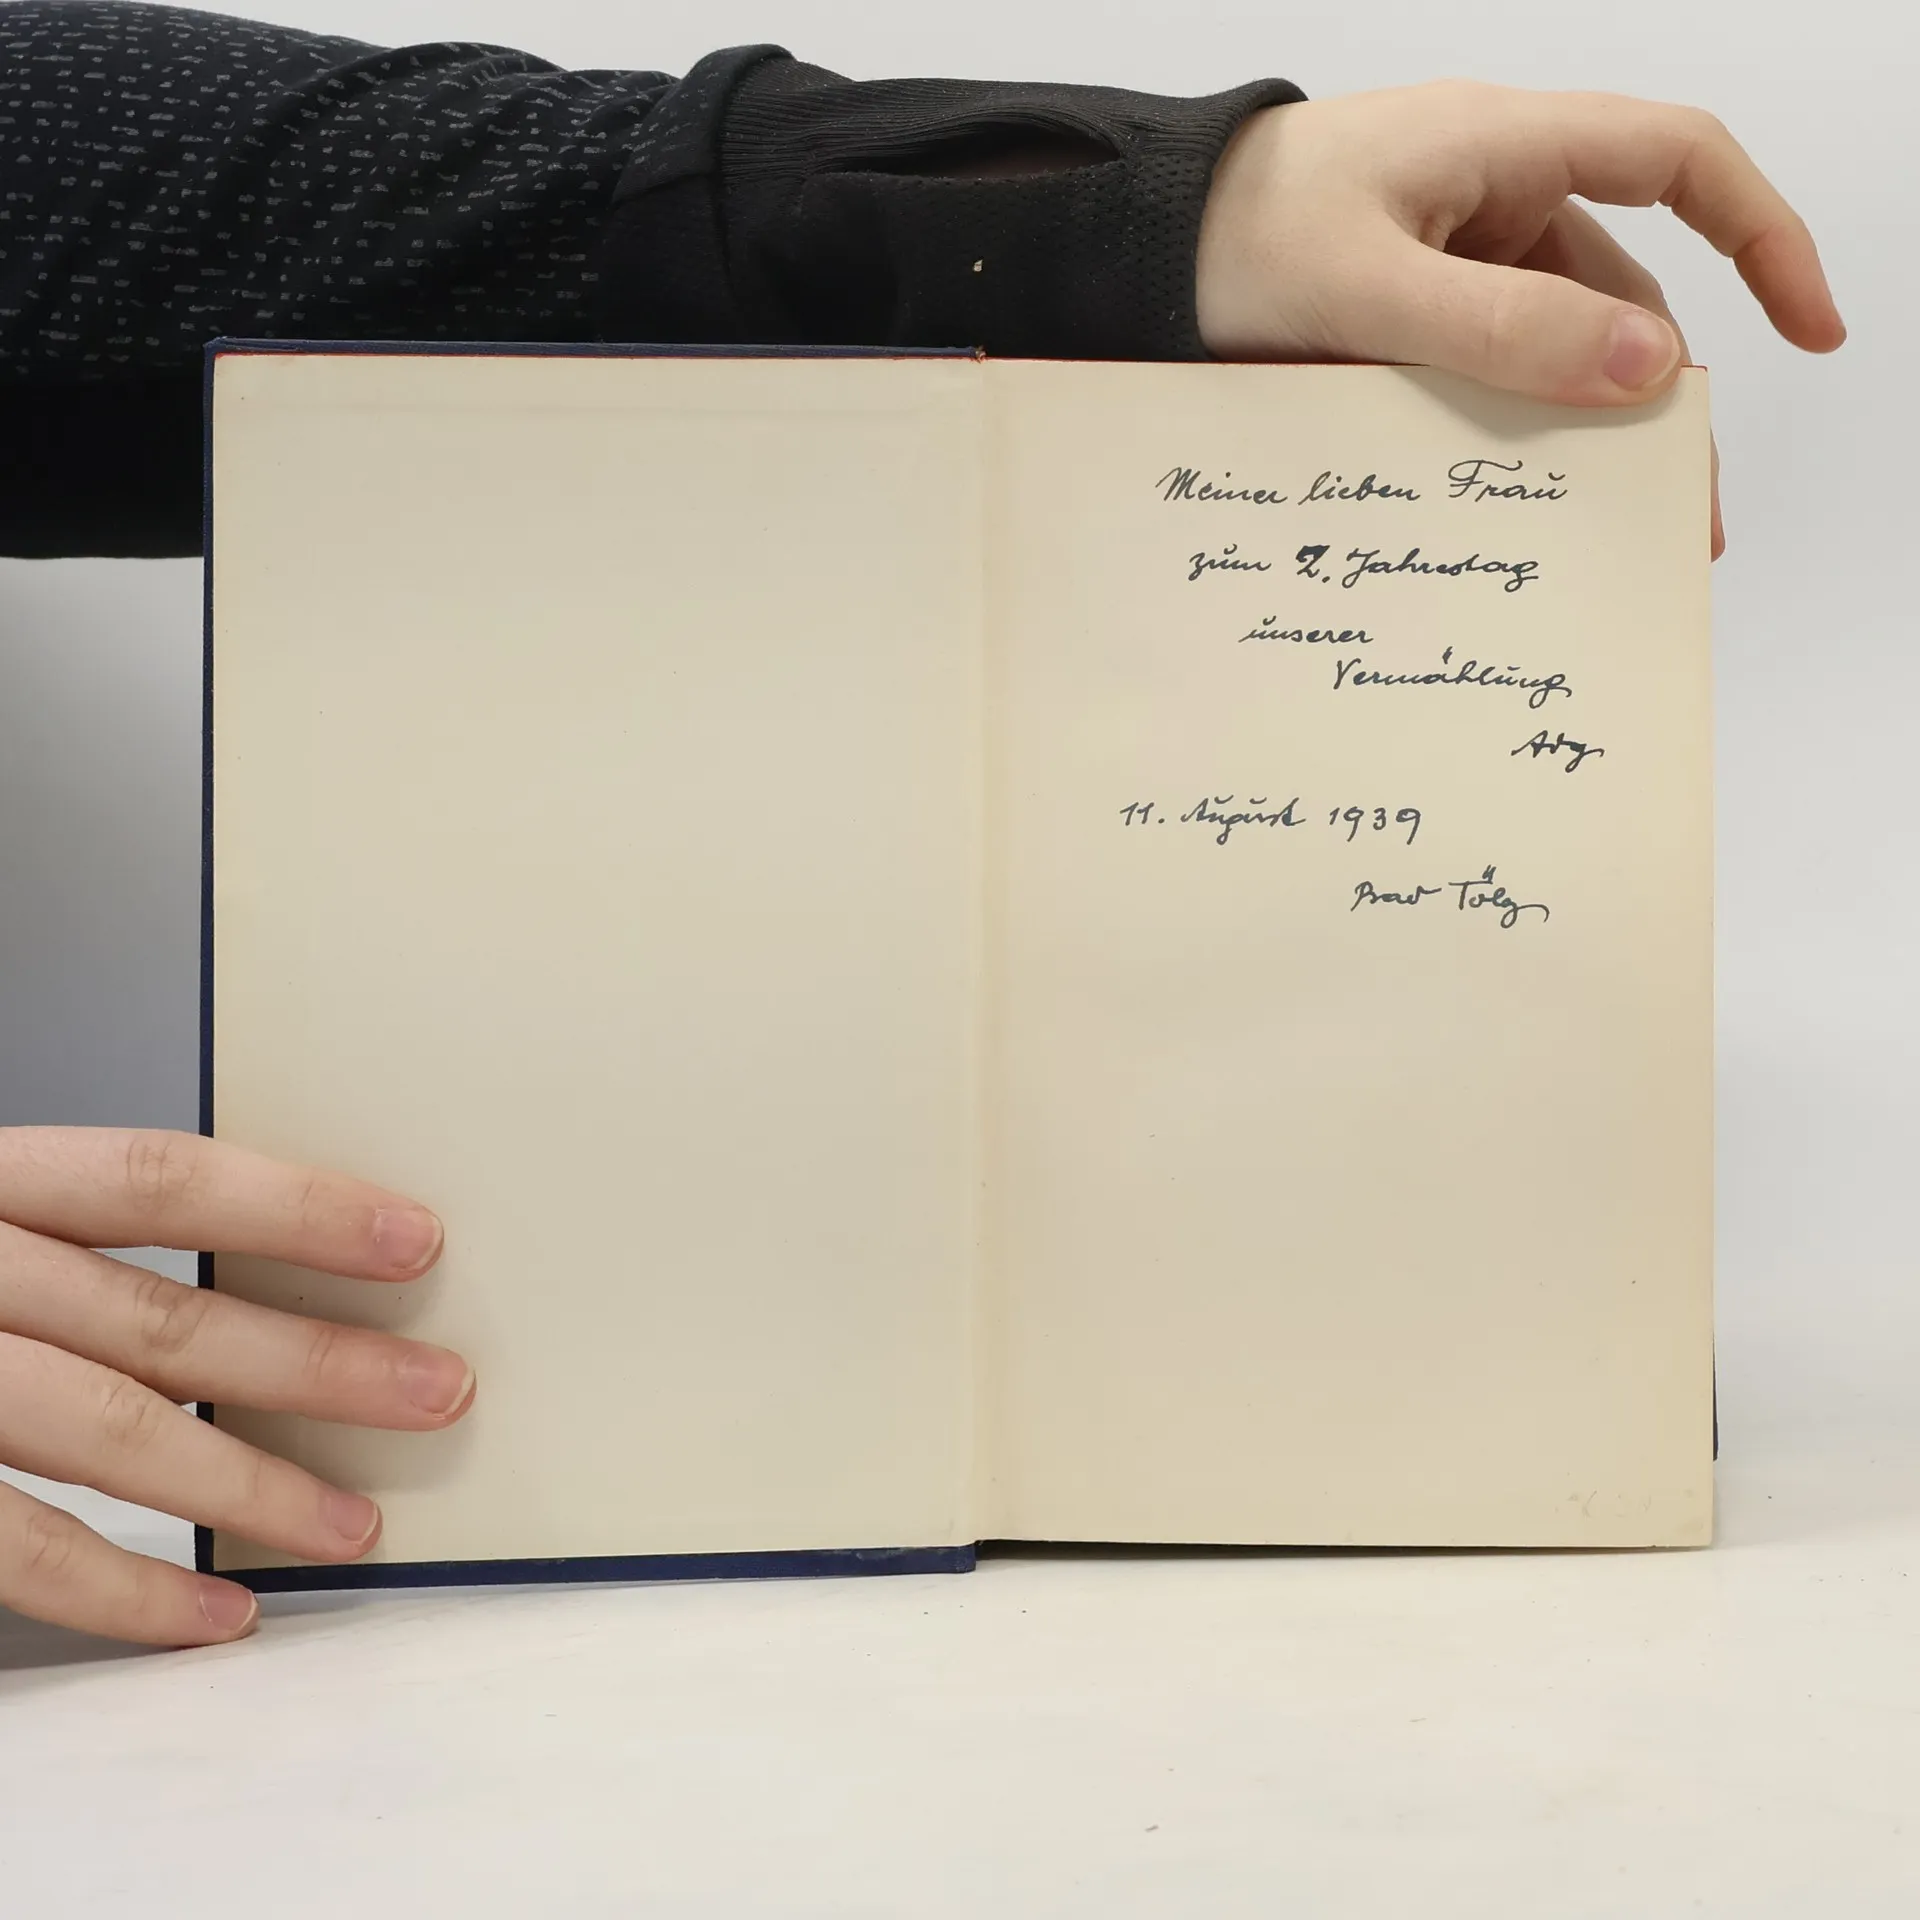 Meiner lieben Frau
zum 2. Jahrestag
unserer
Vermählung
11. August 1939
Bad Tölz